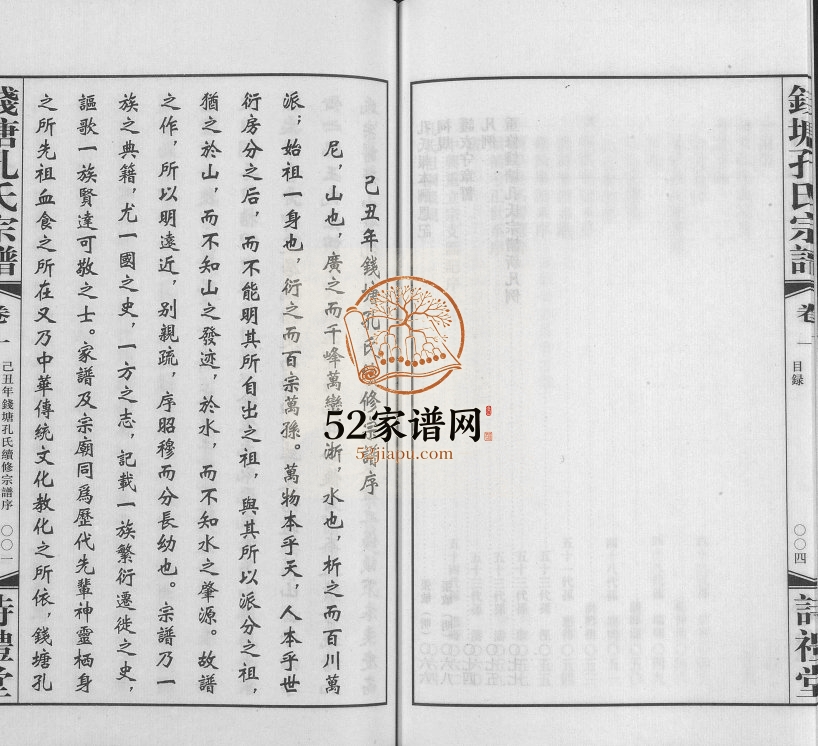 錢塘孔氏宗譜
卷一
目録
〇〇四
詩禮堂
己丑年錢塘孔氏 修宗譜序
尼，山也，廣之而千峰萬巒 浙，水也，析之而百川萬
派；始祖一身也，衍之而百宗萬孫。萬物本乎天，人本乎世
衍房分之后，而不能明其所自出之祖，與其所以派分之祖，
猶之於山，而不知山之發迹，於水，而不知水之肇源。故譜
之作，所以明遠近，别親疏，序昭穆而分長幼也。宗譜乃一
族之典籍，尤一國之史，一方之志，記載一族繁衍遷徙之史，
謳歌一族賢達可敬之士。家譜及宗廟同爲歷代先輩神靈栖身
之所先祖血食之所在又乃中華傳統文化教化之所依，錢塘孔
錢塘孔氏宗譜
卷一
己丑年錢塘孔氏續修宗譜序
〇〇一
詩禮堂
52家谱网
52jiapu.com